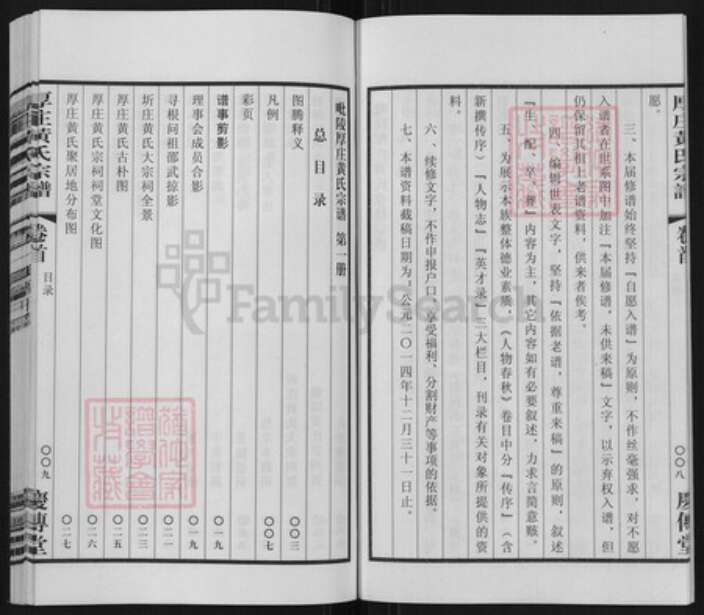 厚庄黄氏宗谱 卷首 〇〇八 庆传堂
愿。
三、本届修谱始终坚持『自愿入谱』为原则，不作丝毫强求，对不愿
入谱者在世系图中加注『本届修谱，未供来稿』文字，以示弃权入谱，但
仍保留其祖上老谱资料，供来者俟考。
四、编辑世表文字，坚持『依据老谱，尊重来稿』的原则，叙述
『生、配、卒、葬』内容为主，其它内容如有必要叙述，力求言简意赅。
五、为展示本族整体德业素质，《人物春秋》卷目中分『传序』（含
新撰传序）『人物志』『英才录』三大栏目，刊录有关对象所提供的资
料。
六、续修文字，不作申报户口、享受福利、分割财产等事项的依据。
七、本谱资料截稿日期为：公元二〇一四年十二月三十一日止。
毗陵厚庄黄氏宗谱 第一册
总目录
图腾释义 〇〇三
凡例 〇〇七
彩页
谱事剪影 〇一九
理事会成员合影 〇一九
寻根问祖邵武掠影 〇二一
圻庄黄氏大宗祠全景 〇二三
厚庄黄氏古朴图 〇二五
厚庄黄氏宗祠祠堂文化图 〇二六
厚庄黄氏聚居地分布图 〇二七
厚庄黄氏宗谱 卷首 目录 〇〇九 庆传堂
FamilySearch